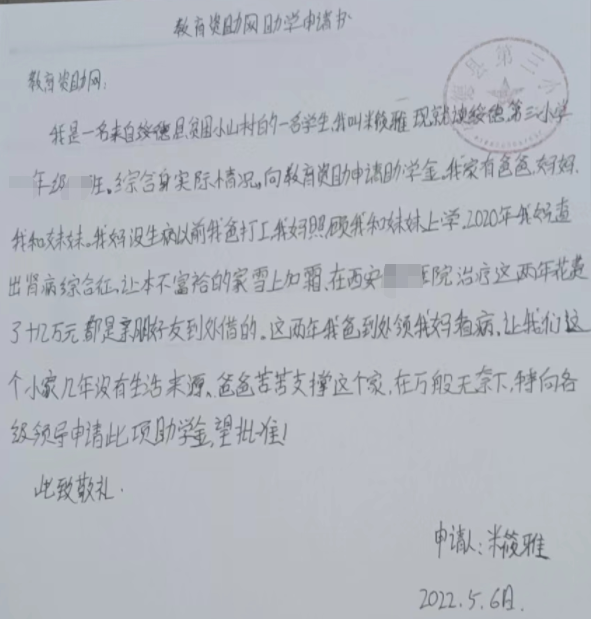 教育资助网助学申请书
县第三小
教育资助网:
我是一名来自绥德县贫困小山村的一名学生,我叫米筱雅 现就读绥德第三小学
年级 班。综合身实际情况。向教育资助申请助学金。我家有爸爸.妈妈.
我和妹妹。我妈没生病以前我爸打工我妈照顾我和妹妹上学.2020年我妈查
出肾病综合征、让本不富裕的家雪上加霜、在西安 医院治疗这两年花费
了十几万元 都是亲朋好友到处借的。这两年我爸到处领我妈看病、让我们这
个小家几年没有生活来源、爸爸苦苦支撑这个家.在万般无奈下,特向各
级领导申请此项助学金,望批准!
此致敬礼.
申请人:米筱雅
2022.5.6日.